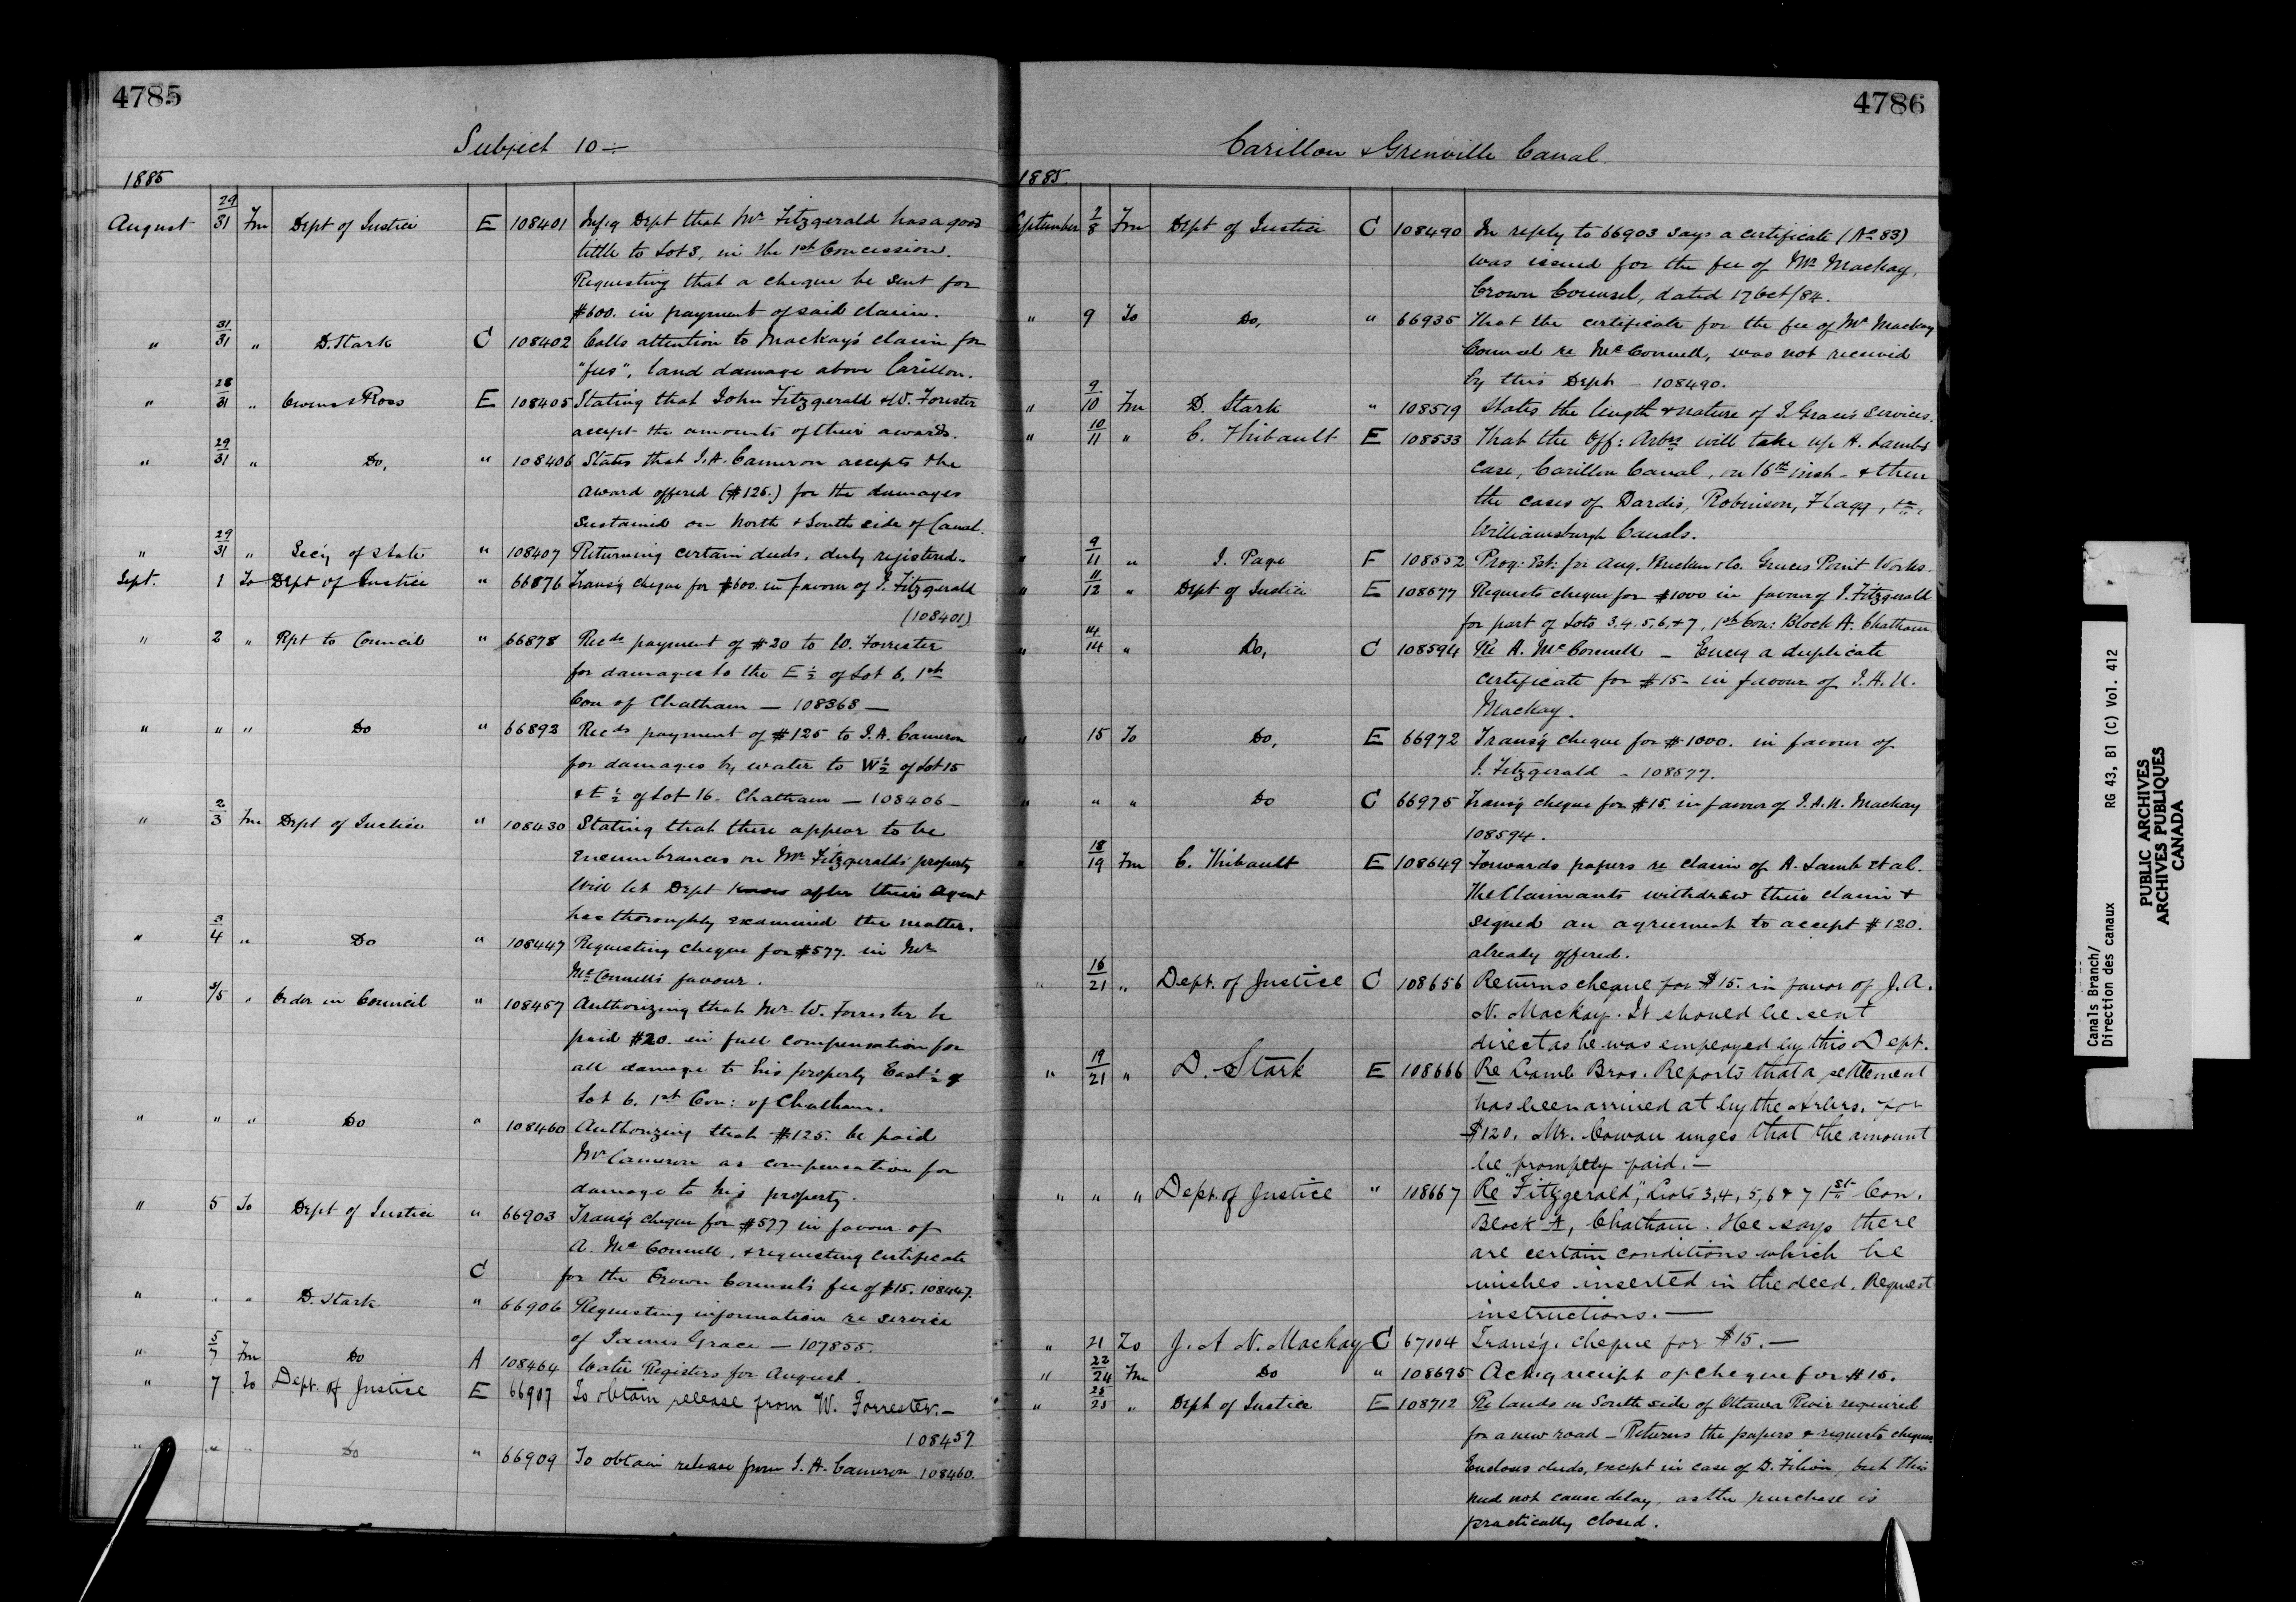 4785
Subject 10 ÷
1885
August 29/31 Fm Dept of Justice E 108401 Infg Dept that Mr Fitzgerald has a good
tittle to Lot 8, in the 1st Concession.
Requesting that a cheque be sent for
$600. in payment of said claim.
" 31/31 " D. Stark C 108402 Calls attention to Mackay's claim for
"fees", land damage above Carillon.
" 28/31 " Owens & Ross E 108405 Stating that John Fitzgerald & W. Forester
accept the amounts of their awards.
" 29/31 " Do, " 108406 States that J. A. Cameron accepts the
award offered ($125.) for the damages
sustained on North & South side of Canal.
" 29/31 " Sec'y of State " 108407 Returning certain deeds, duly registered.
Sept. 1 To Dept of Justice " 66876 Trans'g cheque for $600. in favour of J. Fitzgerald
(108401)
" 2 " Rpt to Council " 66878 Recds payment of $20 to W. Forrester
for damages to the E ½ of Lot 6, 1st
Con of Chatham — 108368 —
" " " Do " 66893 Recds payment of $125 to J. A. Cameron
for damages by water to W ½ of Lot 15
& E ½ of Lot 16. Chatham — 108406 —
" 2/3 Fm Dept of Justice " 108430 Stating that there appear to be
encumbrances on Mr Fitzgerald's property
Will let Dept know after their Agent
has thoroughly examined the matter.
" 3/4 " Do " 108447 Requesting cheque for $577. in Mr
McConnell's favour.
" 3/5 " Order in Council " 108457 Authorizing that Mr W. Forrester be
paid $20. in full compensation for
all damage to his property East ½ of
Lot 6, 1st Con: of Chatham.
" " " Do " 108460 Authorizing that $125. be paid
Mr Cameron as compensation for
damage to his property.
" 5 To Dept of Justice " 66903 Trans'g cheque for $577 in favour of
A. McConnell, & requesting certificate
C for the Crown Counsel's fee of $15. 108447.
" " " D. Stark " 66906 Requesting information re service
of James Grace — 107855.
" 5/7 Fm Do A 108464 Water Registers for August.
" 7 To Dept. of Justice E 66907 To obtain release from W. Forrester. —
108457
" " " Do " 66909 To obtain release from J. A. Cameron 108460.
4786
Carillon & Grenville Canal.
1885.
September 7/8 Fm Dept of Justice C 108490 In reply to 66903 says a certificate (No 83)
was issued for the fee of Mr Mackay,
Crown Counsel, dated 17 Oct/84.
" 9 To Do, " 66935 That the certificate for the fee of Mr Mackay
Counsel re McConnell, was not received
by this Dept — 108490.
" 9/10 Fm D. Stark " 108519 States the length & nature of J. Grace's services.
" 10/11 " C. Thibault E 108533 That the Off: Arbrs will take up A. Lamb's
case, Carillon Canal, on 16th inst — & then
the cases of Dardis, Robinson, Flagg, &c,
Williamsburgh Canals.
" 9/11 " J. Page F 108552 Prog: Est: for Aug. & Co. Graces Point Works.
" 11/12 " Dept of Justice E 108577 Requests cheque for $1000 in favour of J. Fitzgerald
for part of Lots 3, 4, 5, 6, & 7, 1st Con: Block A. Chatham
" 14/14 " Do, C 108594 Re A. McConnell — Encg a duplicate
certificate for $15 — in favour of J. A. N.
Mackay.
" 15 To Do, E 66972 Trans'g cheque for $1000. in favour of
J. Fitzgerald — 108577.
" " " Do C 66975 Trans'g cheque for $15. in favour of J. A. N. Mackay
108594.
" 18/19 Fm C. Thibault E 108649 Forwards papers re claim of A. Lamb et al.
The Claimants withdrew their claim &
signed an agreement to accept $120.
already offered.
" 16/21 " Dept. of Justice C 108656 Returns cheque for $15. in favor of J. A.
N. Mackay. It should be sent
direct as he was employed by this Dept.
" 19/21 " D. Stark E 108666 Re Lamb Bros. Reports that a settlement
has been arrived at by the Arbrs. for
$120. Mr. Cowan urges that the amount
be promptly paid. —
" " " Dept. of Justice " 108667 Re "Fitzgerald", Lots 3, 4, 5, 6 & 7 1st Con.
Block A, Chatham. He says there
are certain conditions which he
wishes inserted in the deed. Request
instructions. —
" 21 To J. A N. Mackay C 67004 Trans'g. cheque for $15. —
" 22/24 Fm Do " 108695 Ackg receipt of cheque for $15.
" 25/25 " Dept of Justice E 108712 Re lands on South side of Ottawa River required
for a new road — Returns the papers & requests cheques
Encloses deeds, except in case of D. Filion, but this
need not cause delay, as the purchase is
practically closed.
Canals Branch/
Direction des canaux RG 43, B1 (C) Vol. 412
PUBLIC ARCHIVES
ARCHIVES PUBLIQUES
CANADA